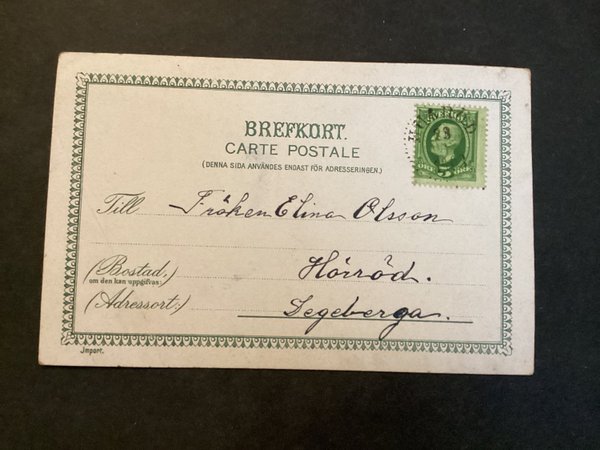 BREFKORT.
CARTE POSTALE
(DENNA SIDA ANVÄNDES ENDAST FÖR ADRESSERINGEN.)
SVERIGE
ÖRE 5 ÖRE
Till Fröken Elina Olsson
Hörröd.
(Bostad:)
om den kan uppgifvas:
(Adressort:) Segeberga.
Import.